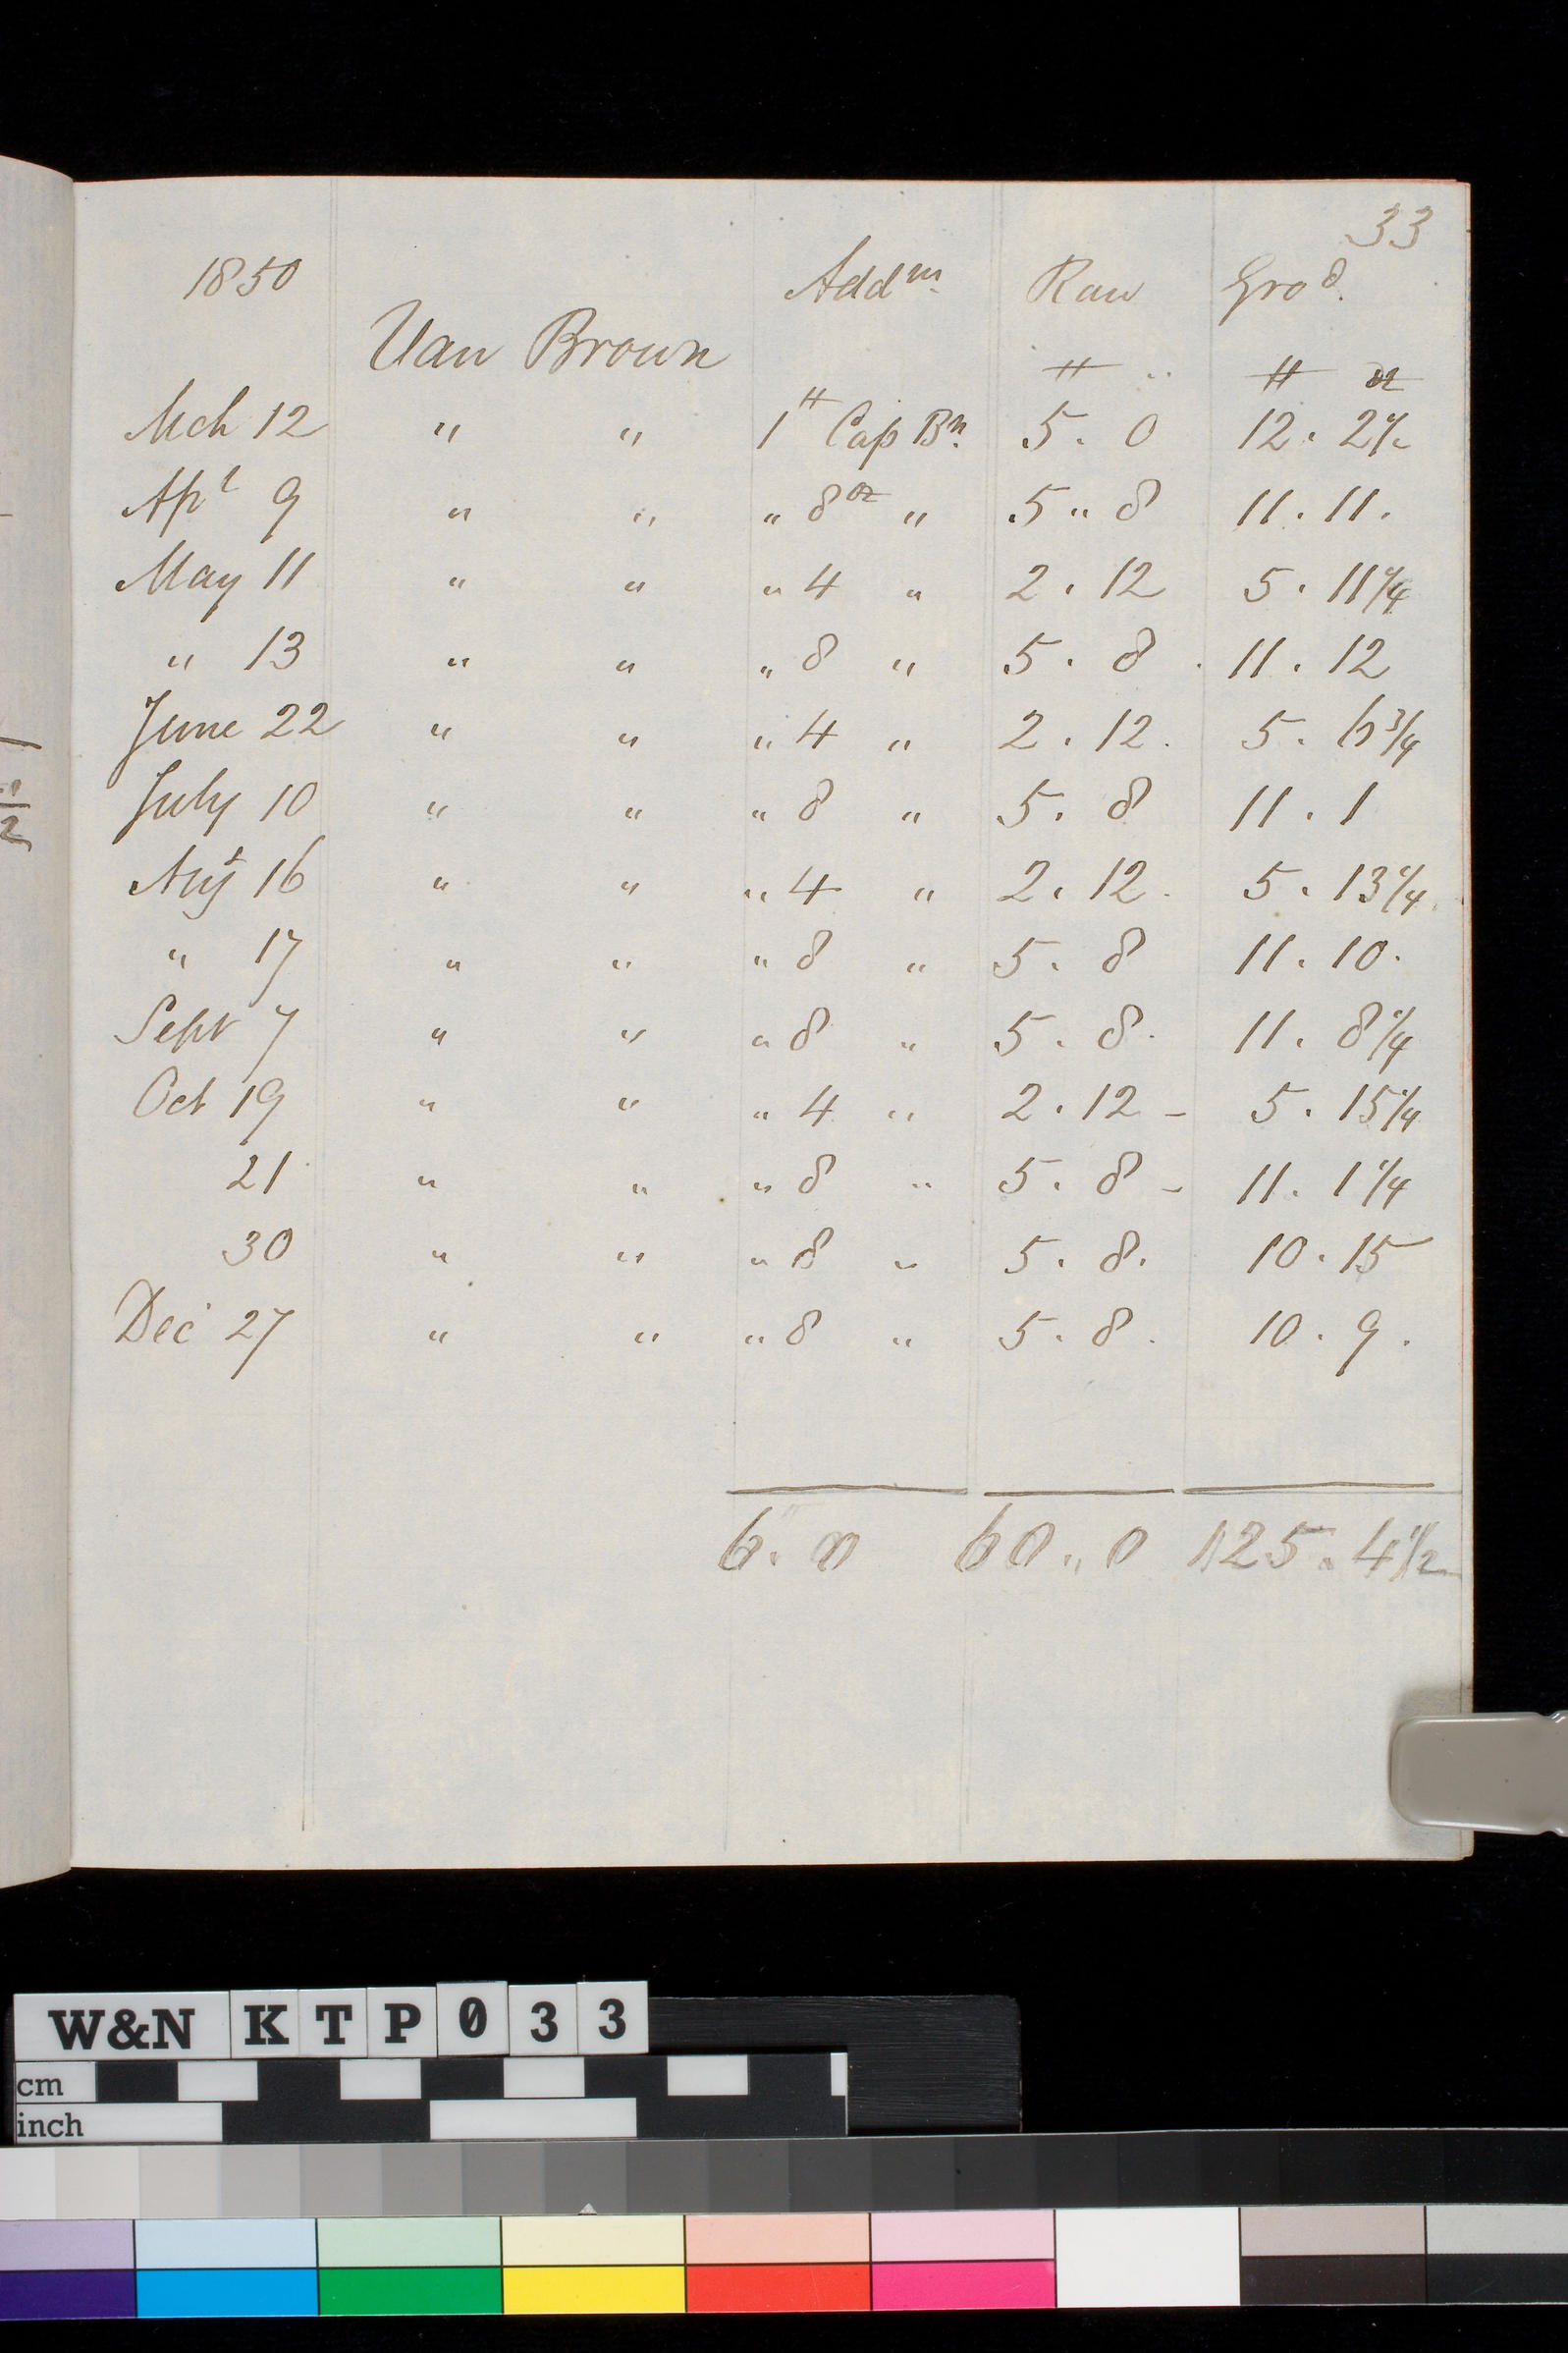 33
1850 Addn. Raw Grod.
Van Brown
℔ .. ℔ oz
Mch 12 " " 1℔ Cap Bn. 5. 0 12. 2½
Apl 9 " " " 8oz " 5 " 8 11. 11.
May 11 " " " 4 " 2. 12 5. 11¼
" 13 " " " 8 " 5. 8 11. 12
June 22 " " " 4 " 2. 12. 5. 6¾
July 10 " " " 8 " 5. 8 11. 1
Augt 16 " " " 4 " 2. 12. 5. 13¼
" 17 " " " 8 " 5. 8 11. 10.
Sept 7 " " " 8 " 5. 8. 11. 8¼
Oct 19 " " " 4 " 2. 12 - 5. 15¼
21 " " " 8 " 5. 8 - 11. 1¼
30 " " " 8 " 5. 8. 10. 15
Dec 27 " " " 8 " 5. 8. 10. 9.
6. 0 60 " 0 125. 4½
W&N KTP033
cm
inch